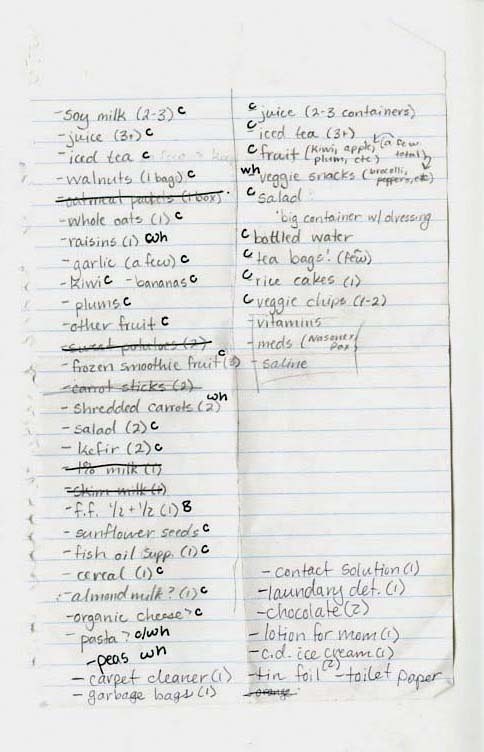 - soy milk (2-3) c
- juice (3+) c
- iced tea c
- walnuts (1 bag) c
- oatmeal packets (1 box)
- whole oats (1) c
- raisins (1) c wh
- garlic (a few) c
- kiwi c - bananas c
- plums c
- other fruit c
- sweet potatoes (2)
- frozen smoothie fruit (3) c
- carrot sticks (2)
- shredded carrots (2) wh
- salad (2) c
- kefir (2) c
- 1% milk (1)
- skim milk (1)
- f.f. 1/2 + 1/2 (1) B
- sunflower seeds c
- fish oil supp. (1) c
- cereal (1) c
- almond milk? (1) c
- organic cheese? c
- pasta? c/wh
- peas wh
- carpet cleaner (1)
- garbage bags (1)
c juice (2-3 containers)
c iced tea (3+)
c fruit (kiwi, apple, plum, etc) (a few total)
wh veggie snacks (brocolli, peppers, etc)
c salad
big container w/ dressing
c bottled water
c tea bags! (few)
c rice cakes (1)
c veggie chips (1-2)
- vitamins
- meds (Nasonex
- saline
- contact solution (1)
- laundary det. (1)
- chocolate (2)
- lotion for mom (1)
- c.d. ice cream (1)
- tin foil (2) - toilet paper
- orange